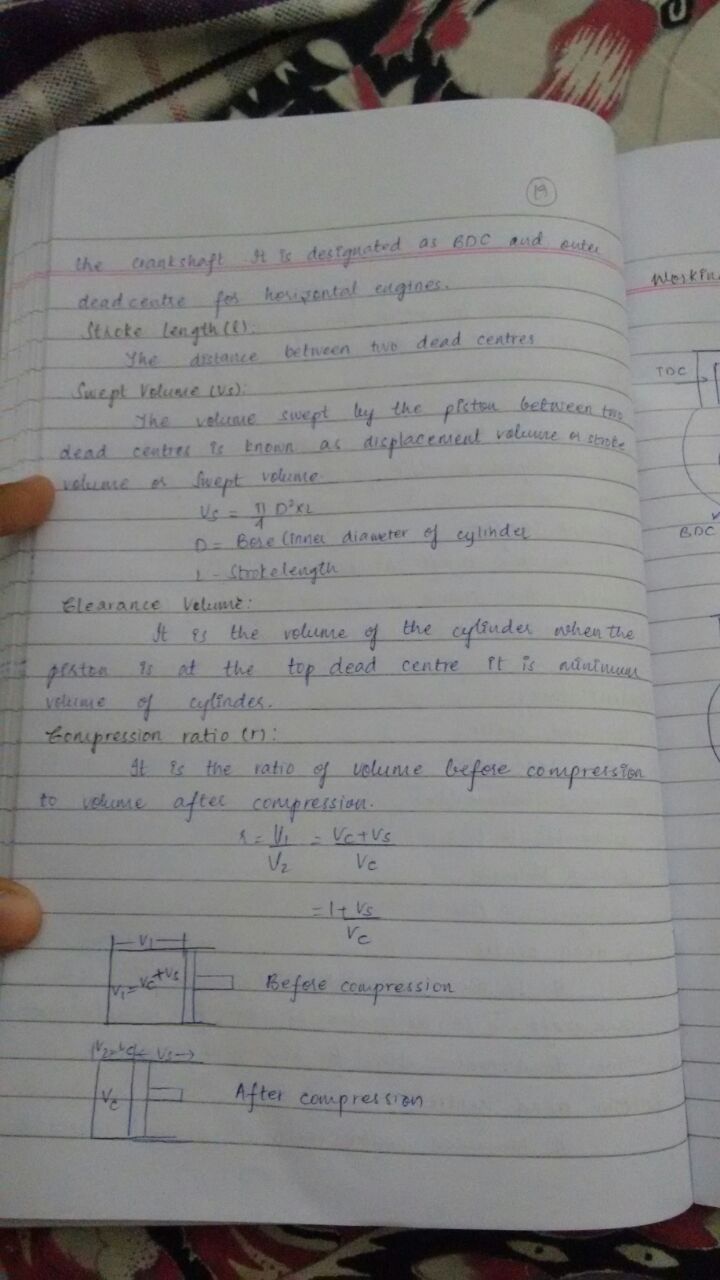 19
the crankshaft It is designated as BDC and outer
dead centre for horizontal engines.
Stroke length (l):
The distance between two dead centres
Swept Volume (Vs):
The volume swept by the piston between two
dead centres is known as displacement volume or stroke
volume or Swept volume.
Vs = π/4 D²×L
D = Bore (inner diameter of cylinder
l - Stroke length
Clearance Volume:
It is the volume of the cylinder when the
piston is at the top dead centre it is minimum
volume of cylinder.
Compression ratio (r):
It is the ratio of volume before compression
to volume after compression.
r = V₁/V₂ = Vc + Vs/Vc
= 1 + Vs/Vc
V₁
V₁ = Vc + Vs
Before compression
V₂=Vc Vs
Vc
After compression
TDC
BDC